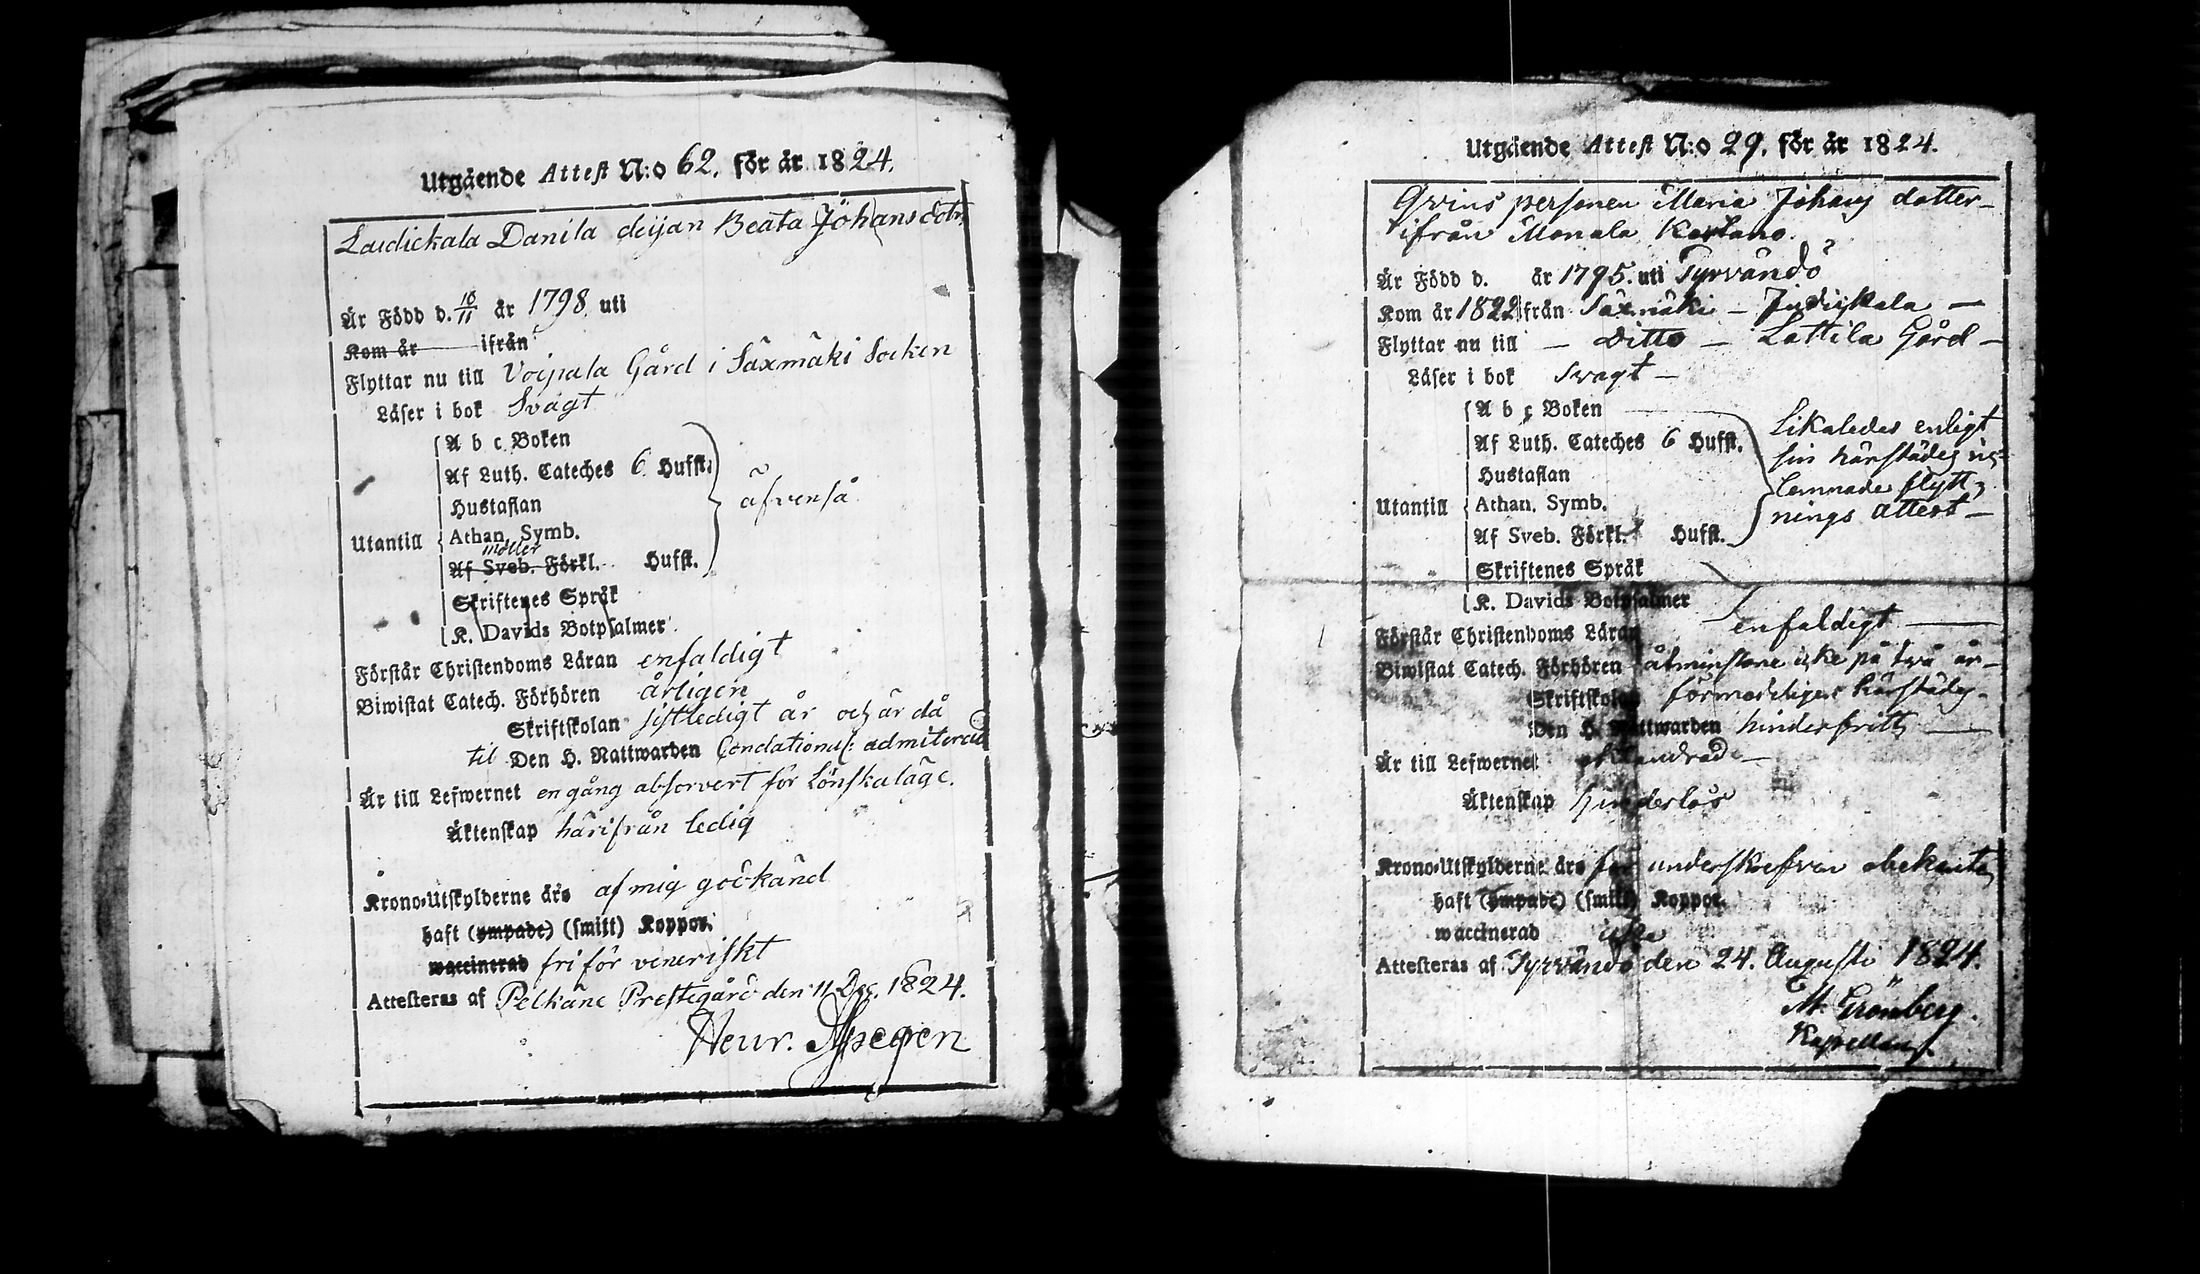 Utgående Attest N:o 62. för år 1824.
Laidickala Danila deijan Beata Johansdotr.
Är Född d. 10/11 år 1798. uti
Kom år ifrån
Flyttar nu till Voipala Gård i Säxmäki Socken
Läser i bok Svagt
A b c Boken
Af Luth. Cateches 6 Hufst.
Hustaflan
äfvenså
Utantill
Athan. Symb.
möller
Af Sveb. Förkl. Hufst.
Skriftenes Språk
K. Davids Botpsalmer
Förstår Christendoms Läran enfaldigt
Biwistat Catech. Förhören årligen
Skriftskolan sistledigt år och är då
til Den H. Nattwarden Condationel: admiterad
Är till Lefwernet en gång absorvert för Lönskaläge.
Äktenskap härifrån ledig
Krono-Utskylderne äro af mig godkänd
haft (ympade) (smitt) Koppor.
waccinerad fri för veneriskt
Attesteras af Pelkäne Prestegård den 11 Dec. 1824.
Henr.
Utgående Attest N:o 29. för år 1824.
Qvins personen Maria Johans dotter
ifrån Monala
Är Född d. år 1795. uti Tyrvändö
Kom år 1822 ifrån Säxmäki –
Flyttar nu till – Ditto – Lottila Gård –
Läser i bok Svagt –
A b c Boken
Af Luth. Cateches 6 Hufst.
Hustaflan
Utantill
Athan. Symb.
Af Sveb. Förkl. Hufst.
Skriftenes Språk
K. Davids Botpsalmer
likaledes enligt
sin härstädes
lemnade flytt
nings attest –
Förstår Christendoms Läran enfaldigt
Biwistat Catech. Förhören åtminstone icke på två år
Skriftskolan förmodeligen härstädes
Den H. Nattwarden hinderfritt
Är till Lefwernet oklandrad –
Äktenskap hinderlös
Krono-Utskylderne äro för underskrefven obekante
haft (ympade) (smitt) Koppor.
waccinerad icke
Attesteras af Tyrvändö den 24. Augusti 1824.
M. Grönberg.
Kapellan